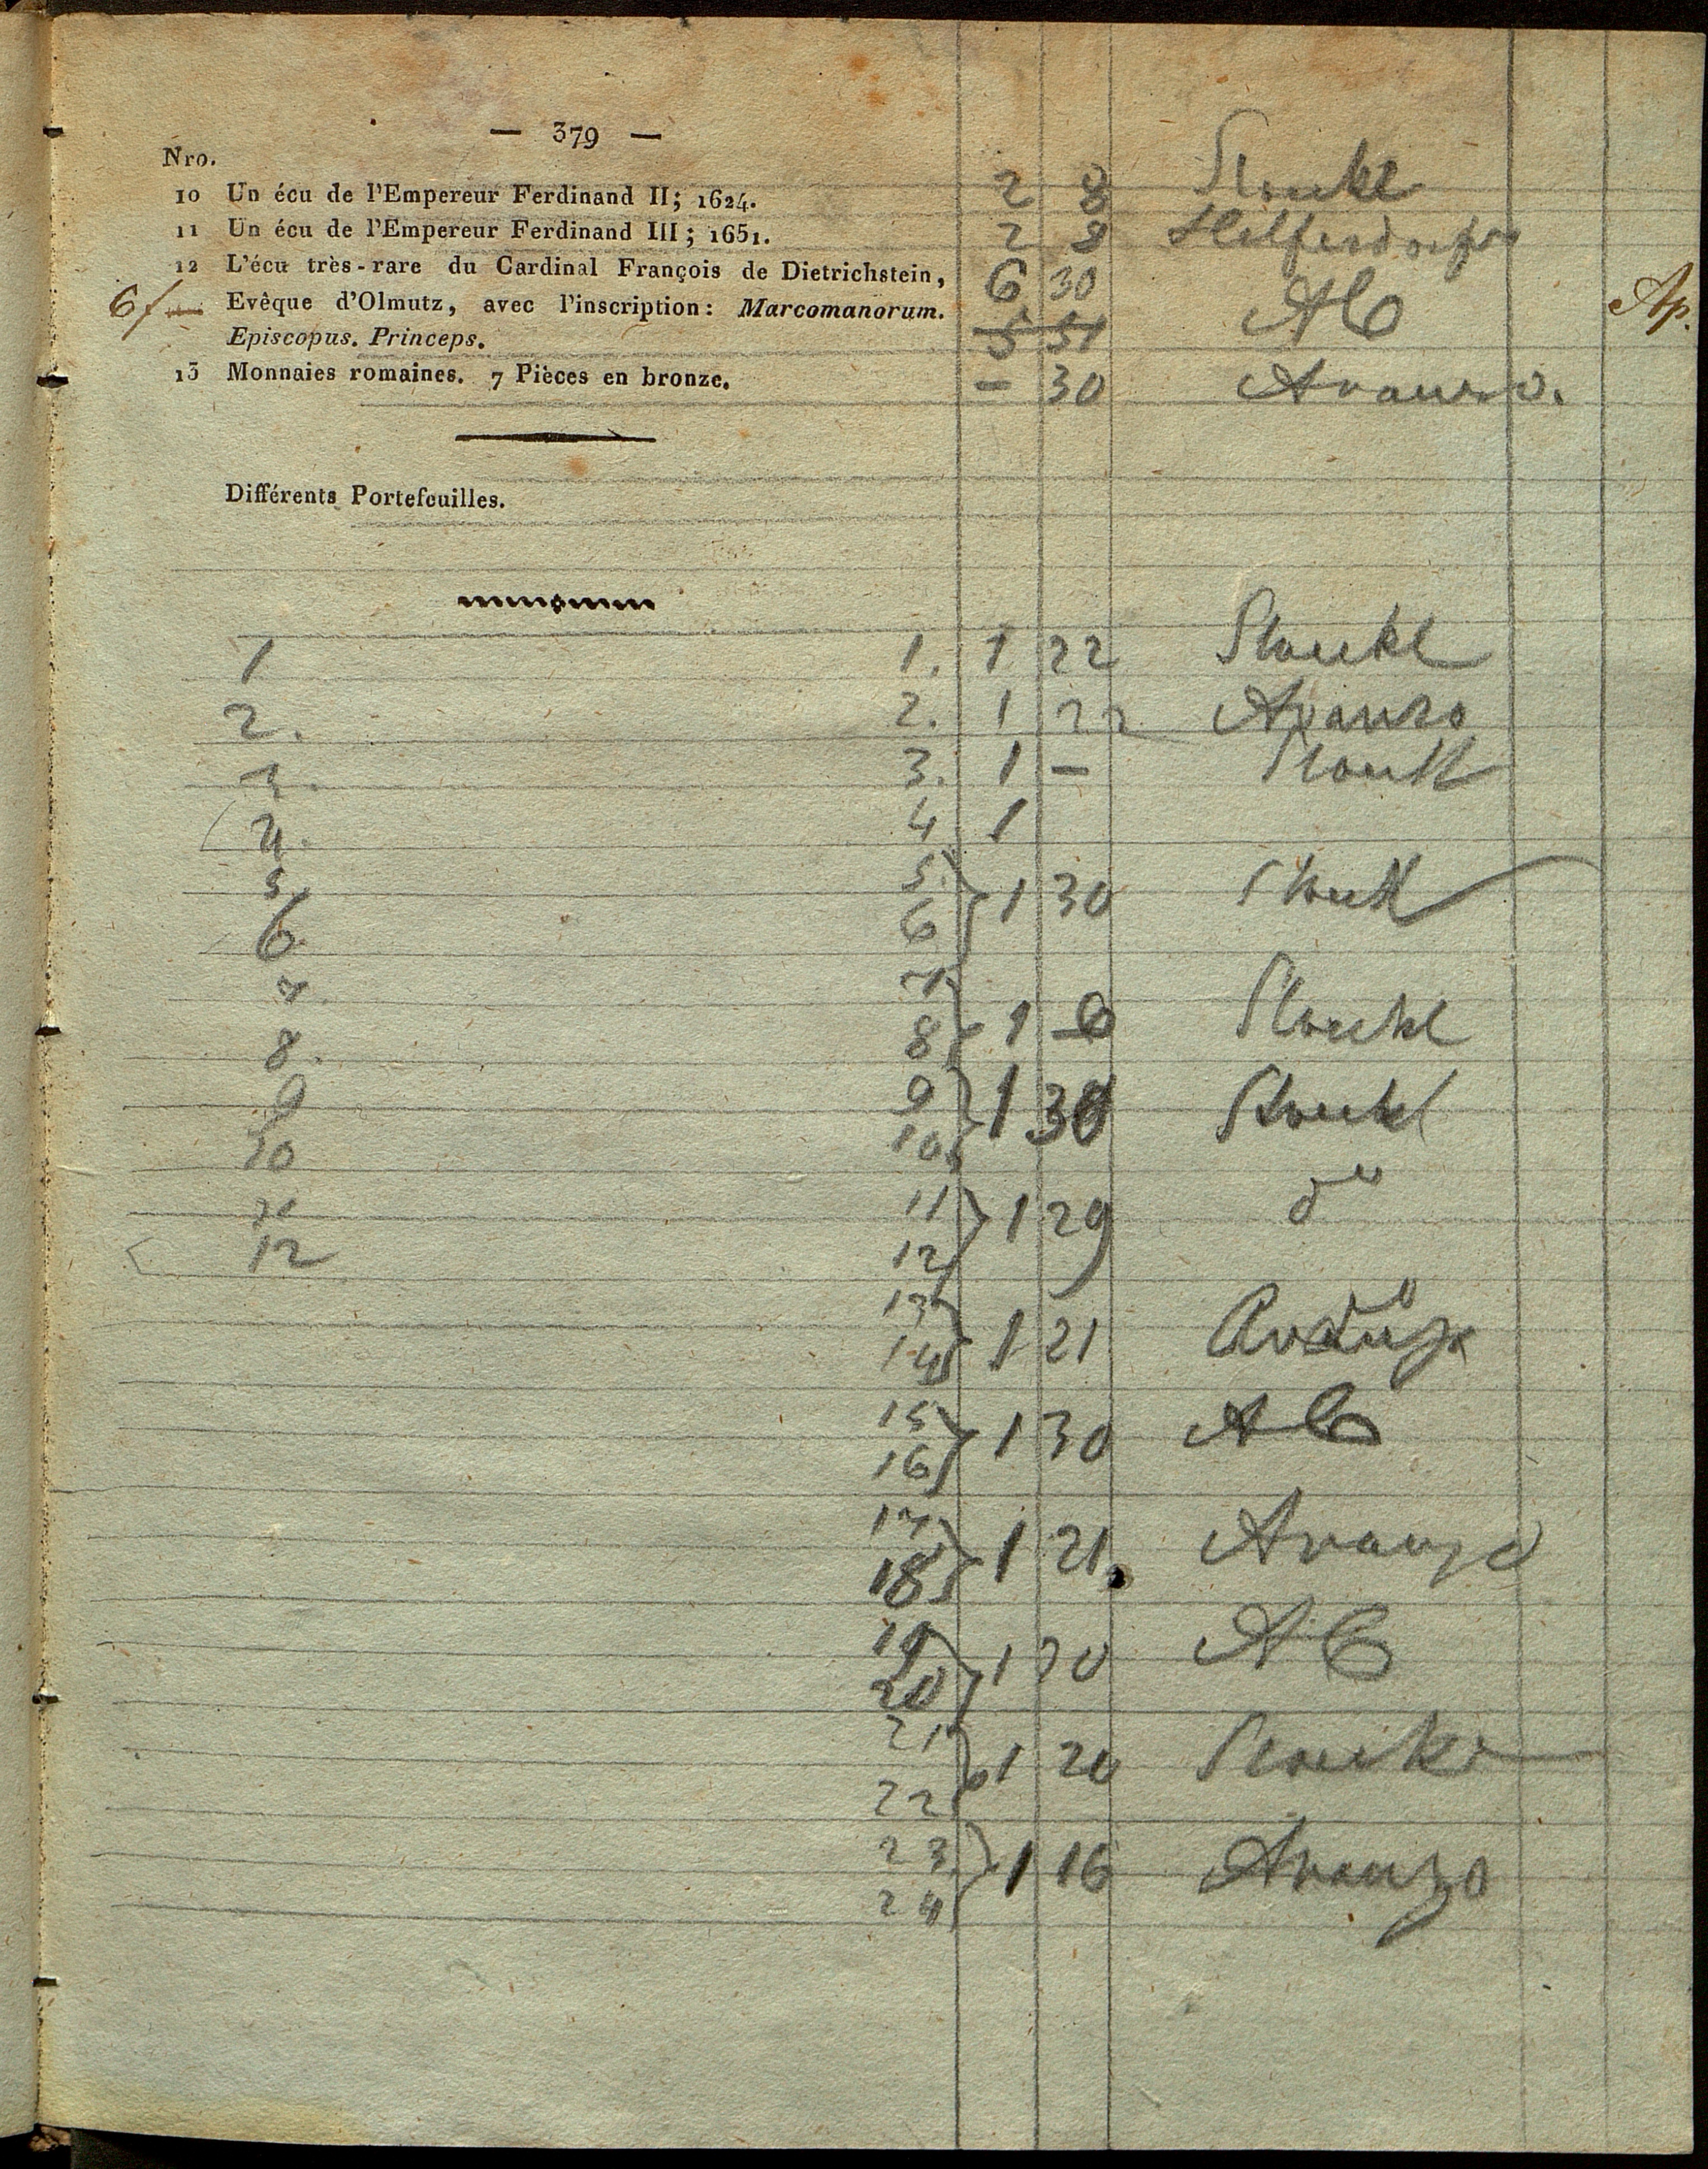 — 379 —
Nro.
10 Un écu de l'Empereur Ferdinand II; 1624. 2 8 Stoukl
11 Un écu de l'Empereur Ferdinand III; 1651. 2 8
12 L'écu très-rare du Cardinal François de Dietrichstein, 6 30
6f — Evêque d'Olmutz, avec l'inscription: Marcomanorum. AC Ap.
Episcopus. Princeps. 5 51
13 Monnaies romaines. 7 Pièces en bronze. – 30 Avanzo.
Différents Portefeuilles.
1 1. 1 22 Stoukl
2. 2. 1 22 Avanzo
3. 3. 1 – Stoukl
4. 4 1
5 5
6 6 1 30 Stoukl
7. 7
8. 8 1 Stoukl
9 9
10 10 1 30 Stoukl
11 11 1 29 do
12 12
13
14 1 21 Avanzo
15
16 1 30 AC
17
18 1 21 Avanzo
19
20 1 30 AC
21
22 1 20 Stoukl
23
24 1 16 Avanzo